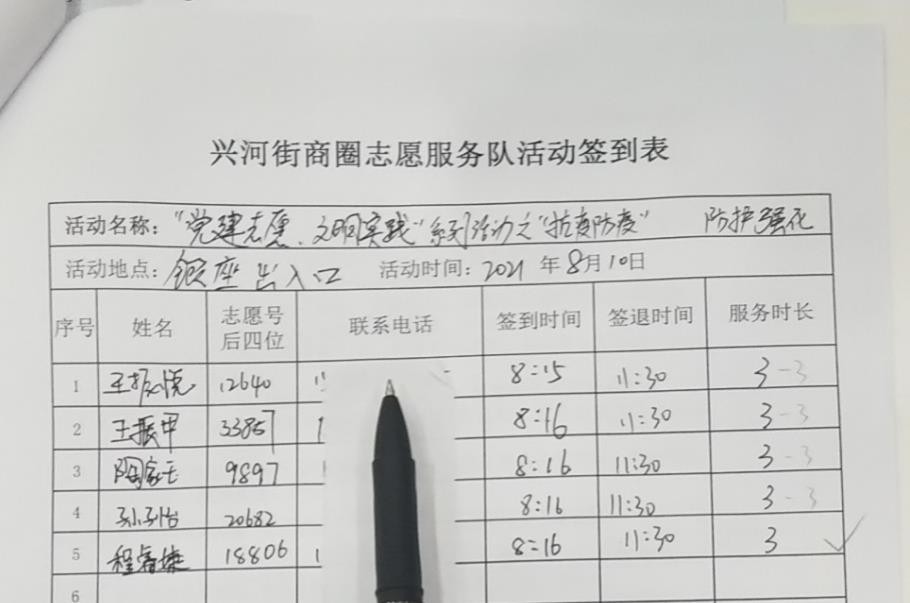 兴河街商圈志愿服务队活动签到表
活动名称：“党建志愿、文明实践”系列活动之“抗疫防疫” 防护强化
活动地点：银座出入口 活动时间：2021 年 8月10日
序号 姓名 志愿号后四位 联系电话 签到时间 签退时间 服务时长
1 王振悦 12640 8:15 11:30 3-3
2 王振甲 33857 8:16 11:30 3-3
3 陶家 9897 8:16 11:30 3-3
4 孙 20682 8:16 11:30 3-3
5 程睿捷 18806 8:16 11:30 3
6